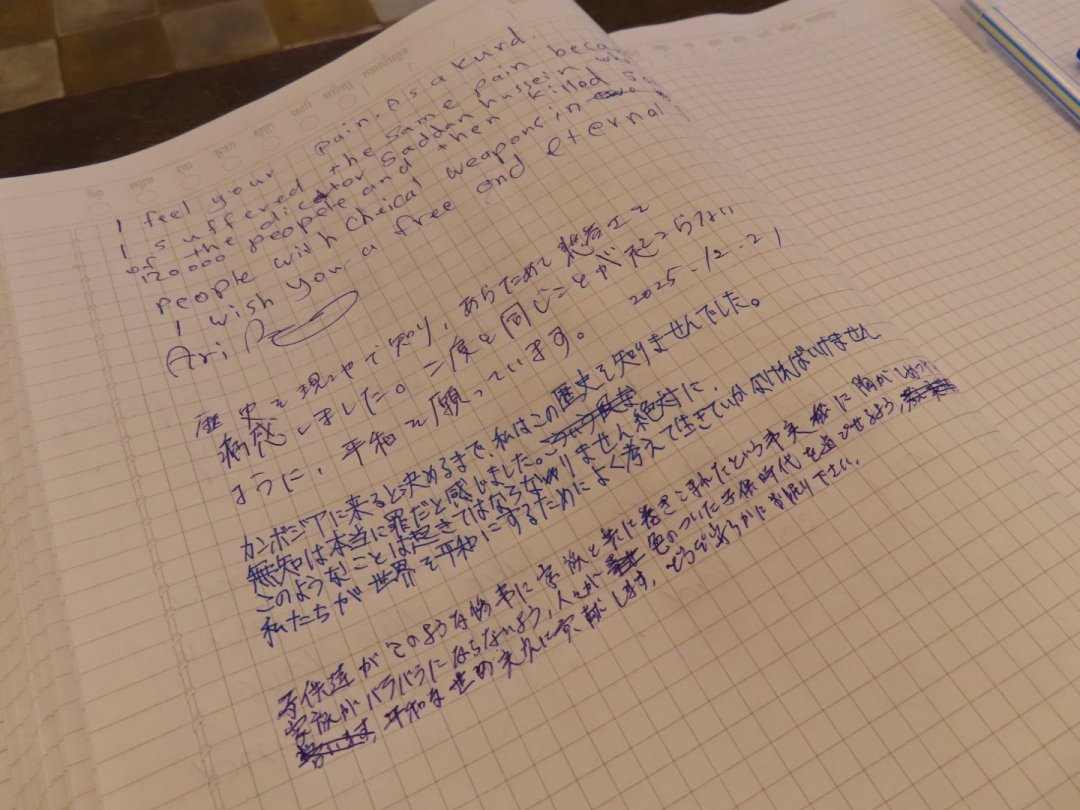 I feel your pain. As a kurd.
I suffered the same pain
of the dicator Saddan hussein
120.000 people and then killed
people with cheical weapons in
I wish you a free and eternal
Ari
歴史を現地で知り、あらためて
病感しました。二度と同じことが起こらない
ように、平和を願っています。 2025-12-21
カンボジアに来ると決めるまで、私はこの歴史を知りませんでした。
無知は本当に罪だと感じました。
このようなことは起きてはならなありません絶対に。
私たちが世界を平和にするためによく考えて生きていかなければいけません
子供達がこのような惨事に家族と共に巻きこまれたという事実 に胸が
家族がバラバラにならないよう、人々が 色のついた子供時代を過ごせるよう、
平和な世の 貢献します。どうぞ安らかにお眠り下さい。